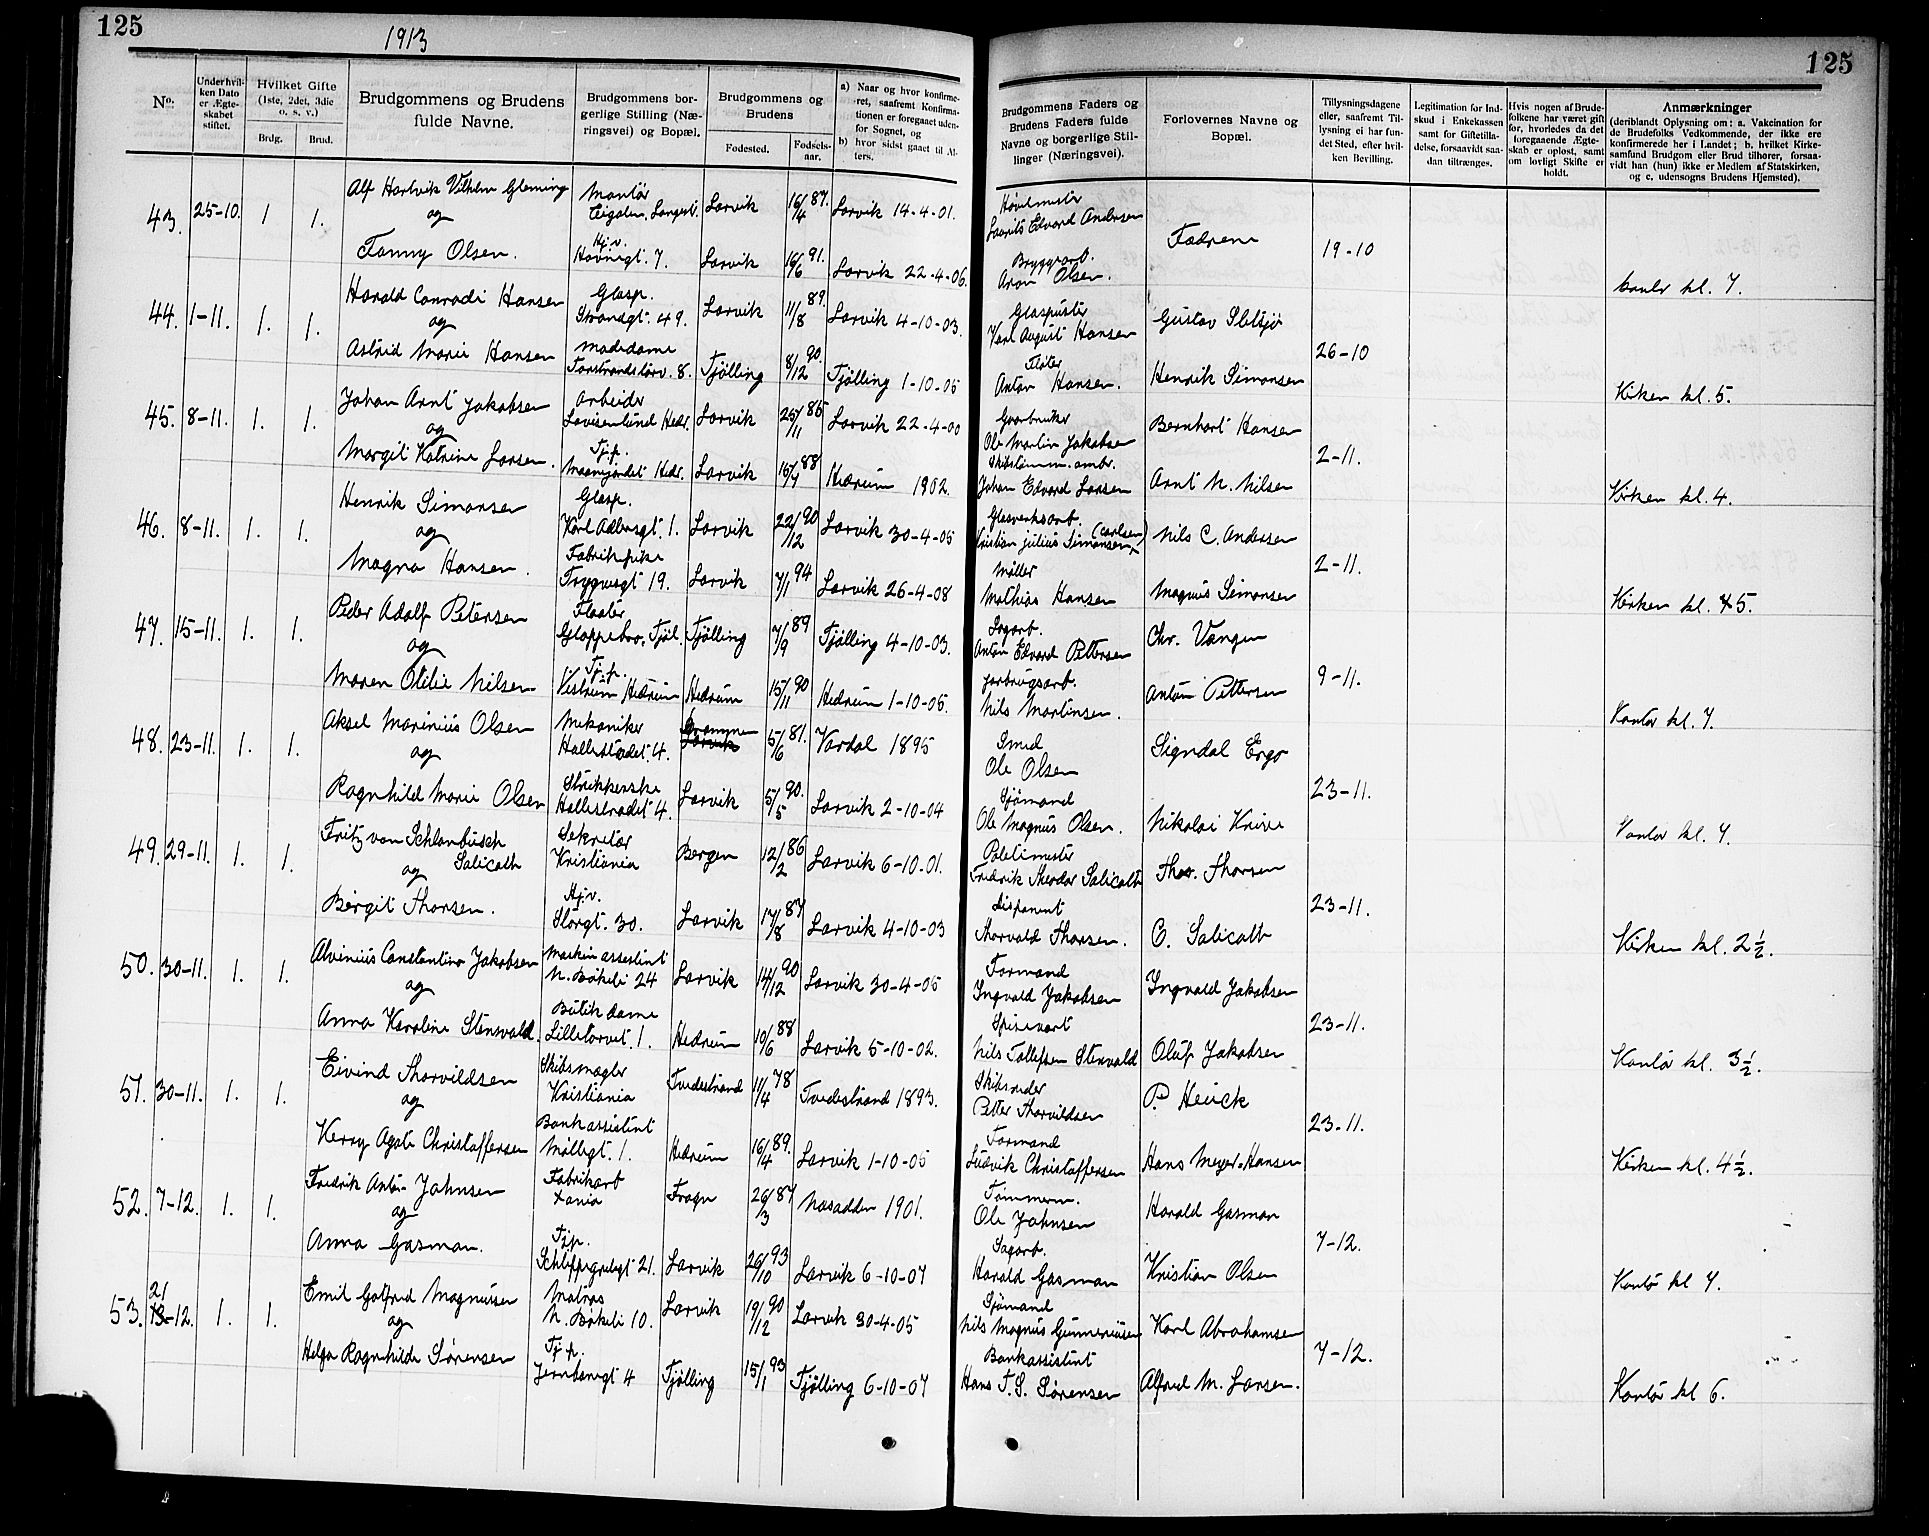 125
1913
125
No.
Underhvil-
ken Dato
er Ægte-
skabet
stiftet.
Hvilket Gifte
(1ste, 2det, 3die
o. s. v.)
Brdg.
Brud.
Brudgommens og Brudens
fulde Navne.
Brudgommens bor-
gerlige Stilling (Næ-
ringsvei) og Bopæl.
Brudgommens og
Brudens
Fødested.
Fødsels-
aar.
a) Naar og hvor konfirme-
ret, saafremt Konfirma-
tionen er foregaaet uden-
for Sognet, og
b) hvor sidst gaaet til Al-
ters.
Brudgommens Faders og
Brudens Faders fulde
Navne og borgerlige Stil-
linger (Næringsvei).
Forlovernes Navne og
Bopæl.
Tillysningsdagene
eller, saafremt Til-
lysning ei har fun-
det Sted, efter hvil-
ken Bevilling.
Legitimation for Ind-
skud i Enkekassen
samt for Giftetilla-
delse, forsaavidt saa-
dan tiltrænges.
Hvis nogen af Brude-
folkene har været gift
før, hvorledes da det
foregaaende Ægte-
skab er opløst, samt
om lovligt Skifte er
holdt.
Anmærkninger
(deriblandt Oplysning om: a. Vakcination for
de Brudefolks Vedkommende, der ikke ere
konfirmerede her i Landet; b, hvilket Kirke-
samfund Brudgom eller Brud tilhører, forsaa-
vidt han (hun) ikke er Medlem af Statskirken,
og c, udensogns Brudens Hjemsted).
43. 25-10. 1 1. Alf Hartvik Vilhelm Gleming Montør Larvik 16/4 87. Larvik 14-4-01. Laurits Edvard Andersen
og
Fanny Olsen. Hj.v. Havnegt. 7. Larvik 16/6 91. Larvik 22-4-06. Bryggearb. Aron Olsen. Fædrene 19-10 kl. 7.
44. 1-11. 1. 1. Harald Conradi Hansen Glasp. Strandgt. 49. Larvik 11/8 89. Larvik 4-10-03. Glaspuster Karl August Hansen Gustav
og
Astrid Marie Hansen Madedame Torstrandstorv. 8. Tjølling 8/12 90. Tjølling 1-10-05 Fløter Anton Hansen. Henrik Simonsen 26-10 Kirken kl. 5.
45. 8-11. 1. 1. Johan Arnt Jakobsen Arbeider Lovisenlund Hedr. Larvik 25/11 85 Larvik 22-4-00 Gaarbruker Ole Martin Jakobsen Bernhart Hansen
og
Margit Katrine Larsen. Tj.p. Hedr. Larvik 15/7 88 Hedrum 1902. Skibstømm. arb. Johan Edvard Larsen Arnt M. Nilsen 2-11. Kirken kl. 4.
46. 8-11. 1. 1. Henrik Simonsen Glasp. Karl Aalbugt. 1. Larvik 22/12 90 Larvik 30-4-05 Glasverksarb. Kristian Julius Simonsen (Carlsen) Nils C. Andersen
og
Magna Hansen. Fabrikpike Tryggvegt 19. Larvik 7/1 94 Larvik 26-4-08 Møller Mathias Hansen Magnus Simonsen 2-11. Kirken kl. 5.
47. 15-11. 1. 1. Peder Adolf Petersen Fløter Gloppebro, Tjøl. Tjølling 7/9 89 Tjølling 4-10-03. Sagarb. Anton Edvard Pettersen Chr. Vangen
og
Maren Otilie Nilsen Tj.p. Vestrum Hedrum Hedrum 15/11 90 Hedrum 1-10-05. Nils Martinsen. Anton Pettersen 9-11. Kontor kl. 7.
48. 23-11. 1. 1. Aksel Marinius Olsen Mekaniker Hallestrædet 4. Brømne Larvik 5/6 81. Vardal 1895 Smed Ole Olsen Signdal Ergo
og
Ragnhild Marie Olsen Strikkerske Hallestrædet 4. Larvik 5/5 90. Larvik 2-10-04 Sjømand Ole Magnus Olsen. Nikolai Knive 23-11. Kontor kl. 7.
49. 29-11. 1. 1. Fritz von Schlanbusch Salicath Sekretær Kristiania Bergen 12/2 86 Larvik 6-10-01. Politimester Fredrik Theodor Salicath Thor. Thorsen
og
Bergit Thorsen. Hj.v. Storgt. 30. Larvik 17/8 87 Larvik 4-10-03 Disponent Thorvald Thorsen. C. Salicath 23-11. Kirken kl. 2 1/2.
50. 30-11. 1. 1. Alvinius Constantino Jakobsen Maskinassistent N. Bøkeli 24 Larvik 14/12 90 Larvik 30-4-05 Formand Ingvald Jakobsen Ingvald Jakobsen
og
Anna Karoline Stensvald. Butikdame Lilletorvet. 1. Hedrum 10/6 88 Larvik 5-10-02. Spisevert Nils Tollefsen Stensvald Oluf Jakobsen 23-11. Kontor kl. 3 1/2.
51. 30-11. 1. 1. Eivind Thorvildsen Skibsmægler Kristiania Tvedestrand 11/4 78 Tvedestrand 1893. Skibsreder Petter Thorvildsen P. Heuck
og
Kerry Agate Christoffersen Bankassistent Møllegt. 1. Hedrum 16/4 89. Larvik 1-10-05 Formand Ludvik Christoffersen Hans Meyer-Hansen 23-11. Kirken kl. 4 1/2.
52. 7-12. 1. 1. Fredrik Anton Johnsen Fabrikarb Xania Frogn 26/3 87 Nesodden 1901. Tømmerm. Ole Johnsen Harald Gasman
og
Anna Gasman. Tj.p. Schleppegrelsgt 21. Larvik 26/10 93 Larvik 6-10-07 Sagarb. Harald Gasman Kristian Olsen 7-12. Kontor kl 7.
53. 21 13-12. 1. 1. Emil Gotfred Magnussen Matros N. Bøkeli 10. Larvik 19/12 90 Larvik 30-4-05 Sjømand Nils Magnus Gunneriussen Karl Abrahamsen
og
Helga Ragnhilde Sørensen Tj.p. Jernbanegt 4 Tjølling 15/1 93 Tjølling 6-10-07 Bankassistent Hans T. S. Sørensen Alfred M. Larsen. 7-12. Kontor kl 6.